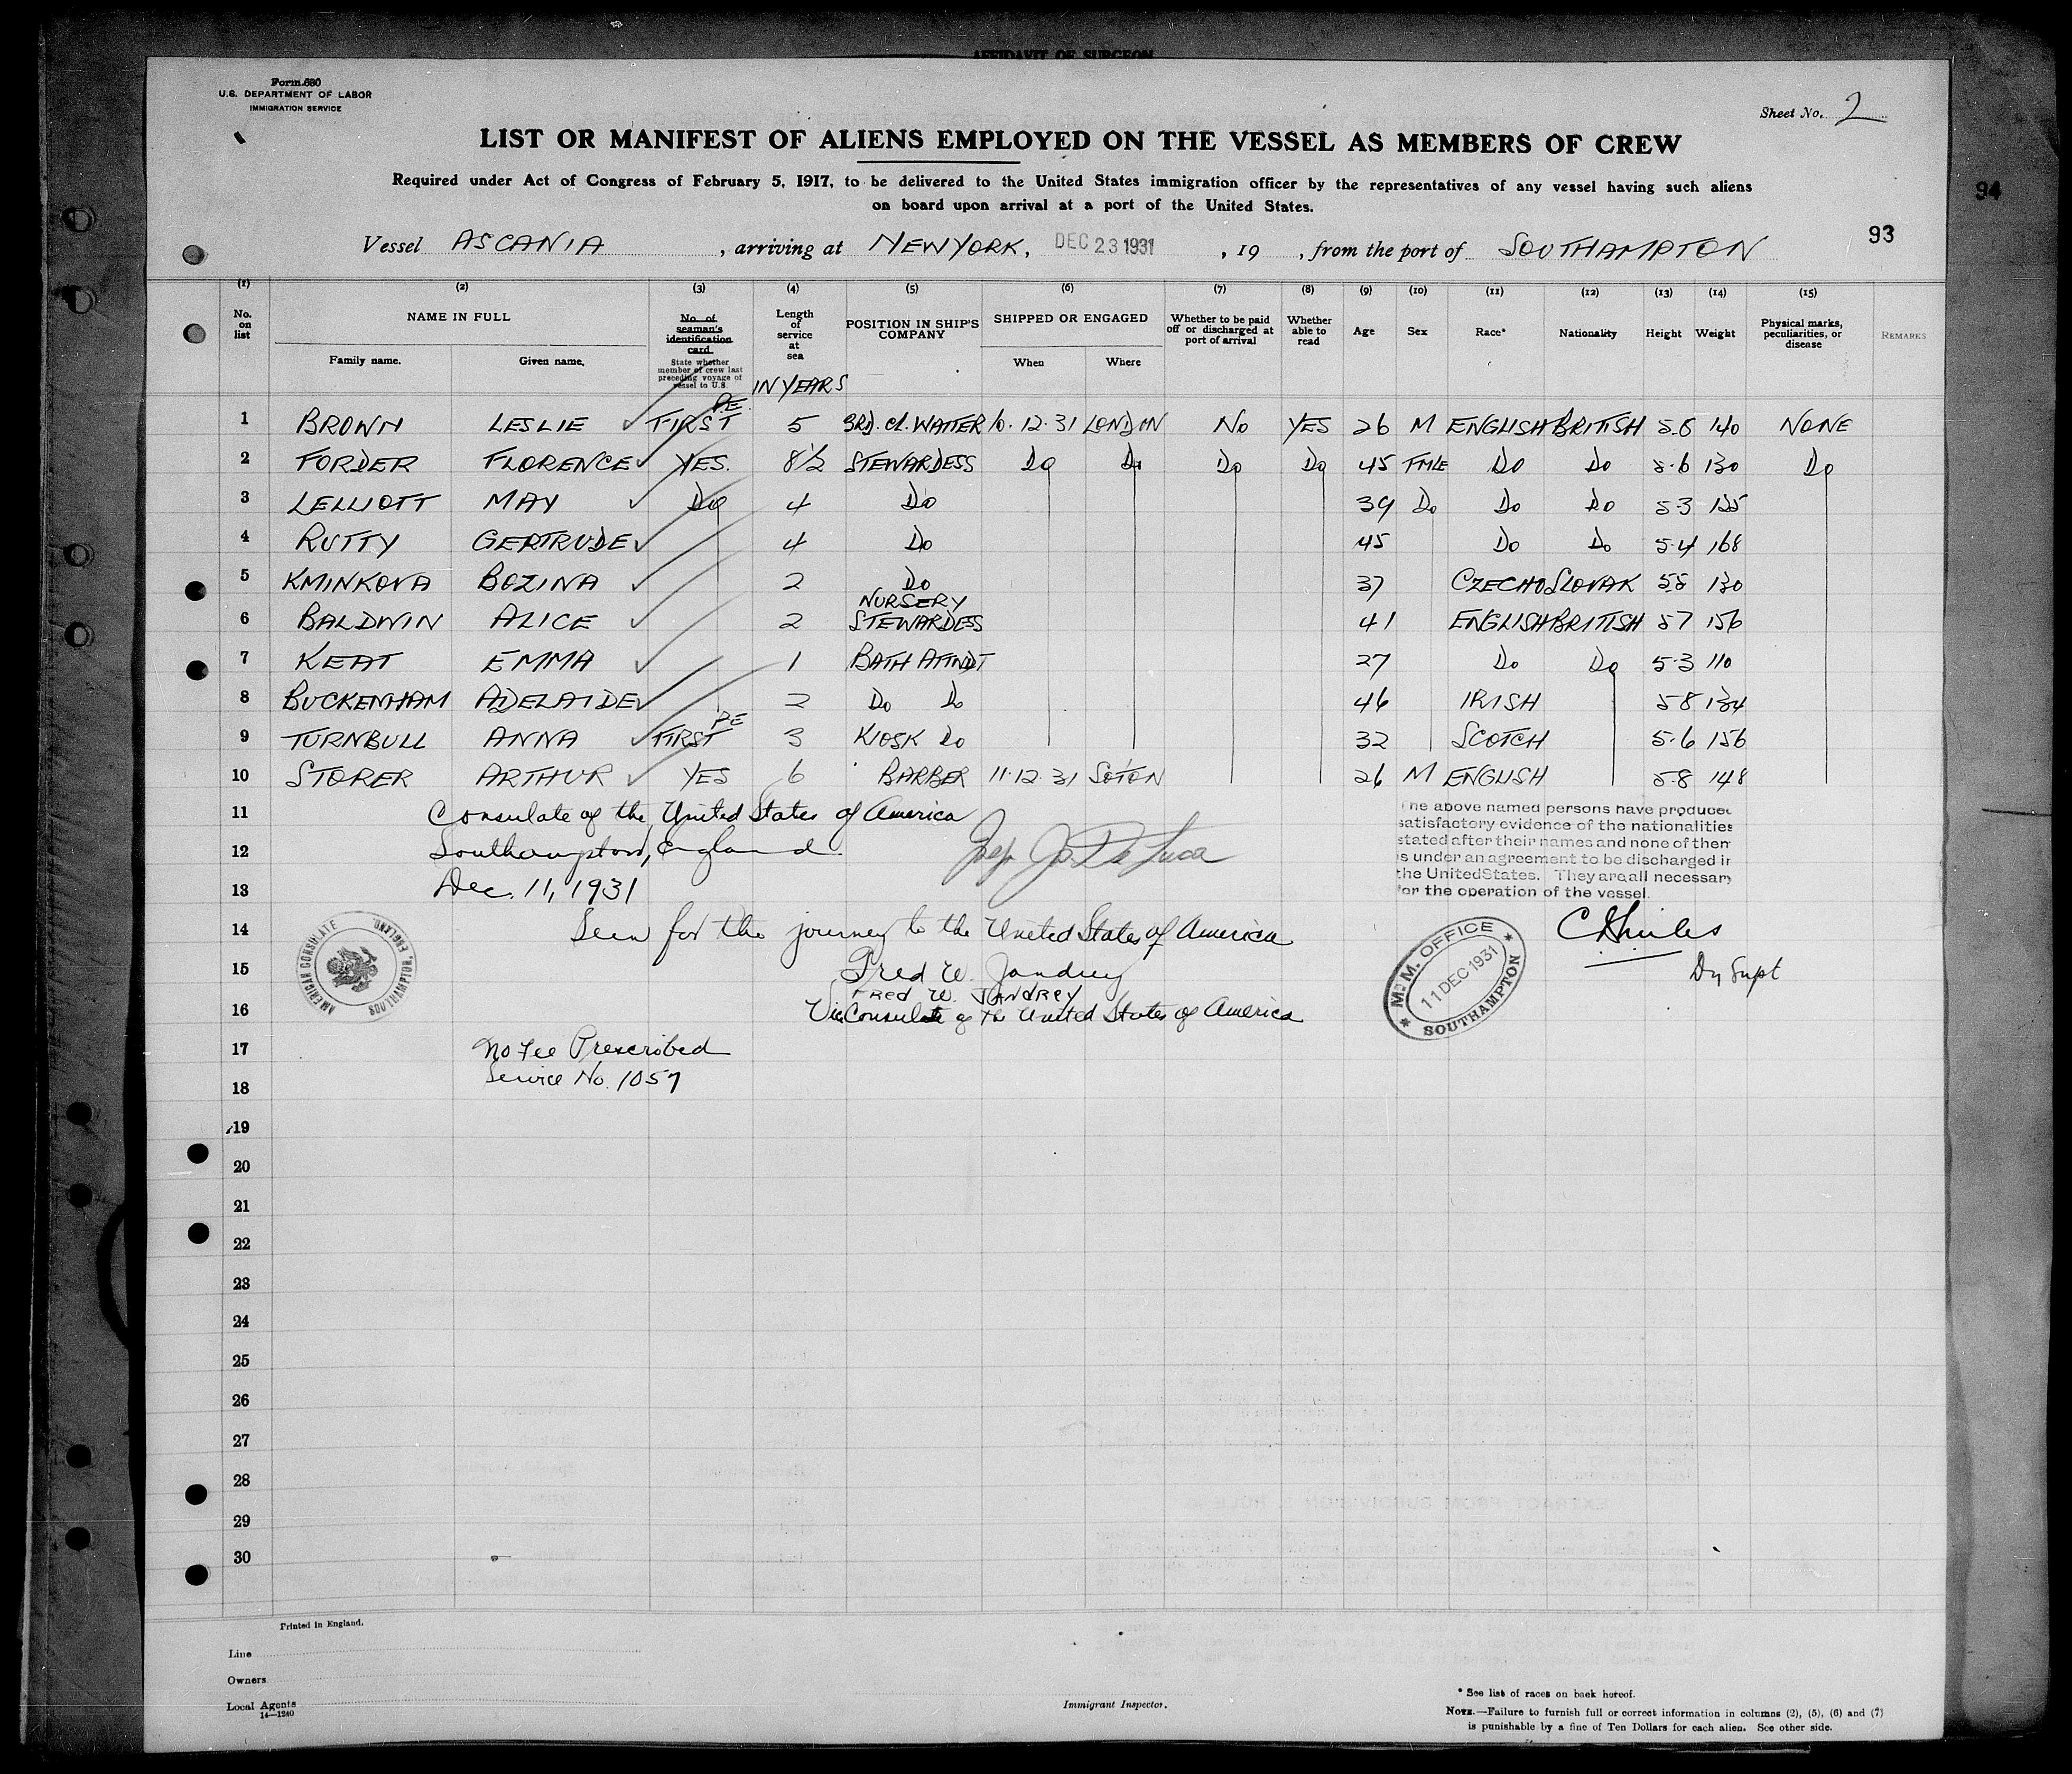 AFFIDAVIT OF SURGEON
Form 680
U.S. DEPARTMENT OF LABOR
IMMIGRATION SERVICE
Sheet No. 2
LIST OR MANIFEST OF ALIENS EMPLOYED ON THE VESSEL AS MEMBERS OF CREW
Required under Act of Congress of February 5, 1917, to be delivered to the United States immigration officer by the representatives of any vessel having such aliens
on board upon arrival at a port of the United States.
94
93
Vessel ASCANIA, arriving at NEW YORK, DEC 23 1931, 19 , from the port of SOUTHAMPTON
(1) (2) (3) (4) (5) (6) (7) (8) (9) (10) (11) (12) (13) (14) (15)
No. on list
NAME IN FULL
Family name. Given name.
No. of seaman's identification card.
State whether member of crew last preceding voyage of vessel to U.S.
Length of service at sea
IN YEARS
POSITION IN SHIP'S COMPANY
SHIPPED OR ENGAGED
When Where
Whether to be paid off or discharged at port of arrival
Whether able to read
Age Sex Race* Nationality Height Weight
Physical marks, peculiarities, or disease
REMARKS
P.E.
1 BROWN LESLIE FIRST 5 3RD. Cl. WAITER 10.12.31 LONDON No YES 26 M ENGLISH BRITISH 5.8 140 NONE
2 FORDER FLORENCE YES. 8½ STEWARDESS Do Do Do Do 45 FMLE Do Do 5.6 130 Do
3 LELLIOTT MAY Do 4 Do 39 Do Do Do 5.3 125
4 RUTTY GERTRUDE 4 Do 45 Do Do 5.4 168
5 KMINKOVA BOZINA 2 Do 37 CZECHOSLOVAK 5.5 130
6 BALDWIN ALICE 2 NURSERY STEWARDESS 41 ENGLISH BRITISH 5.7 156
7 KEAT EMMA 1 BATH ATTNDT 27 Do Do 5.3 110
8 BUCKENHAM ADELAIDE 2 Do Do 46 IRISH 5.8 134
PE
9 TURNBULL ANNA FIRST 3 KIOSK Do 32 SCOTCH 5.6 156
10 STORER ARTHUR YES 6 BARBER 11.12.31 SOTON 26 M ENGLISH 5.8 148
11 Consulate of the United States of America
12 Southampton, England.
13 Dec. 11, 1931
The above named persons have produced
satisfactory evidence of the nationalities
stated after their names and none of them
is under an agreement to be discharged in
the United States. They are all necessary
for the operation of the vessel.
14 Seen for the journey to the United States of America
15 Fred W. Jandrey
FRED W. JANDREY
16 Vice Consul of the United States of America
AMERICAN CONSULATE SOUTHAMPTON, ENGLAND.
M. M. OFFICE
11 DEC 1931
SOUTHAMPTON
Dy Supt
17 No Fee Prescribed
18 Service No. 1057
19
20
21
22
23
24
25
26
27
28
29
30
Printed in England.
Line
Owners
Local Agents
14—1240
Immigrant Inspector.
* See list of races on back hereof.
NOTE.—Failure to furnish full or correct information in columns (2), (5), (6) and (7)
is punishable by a fine of Ten Dollars for each alien. See other side.